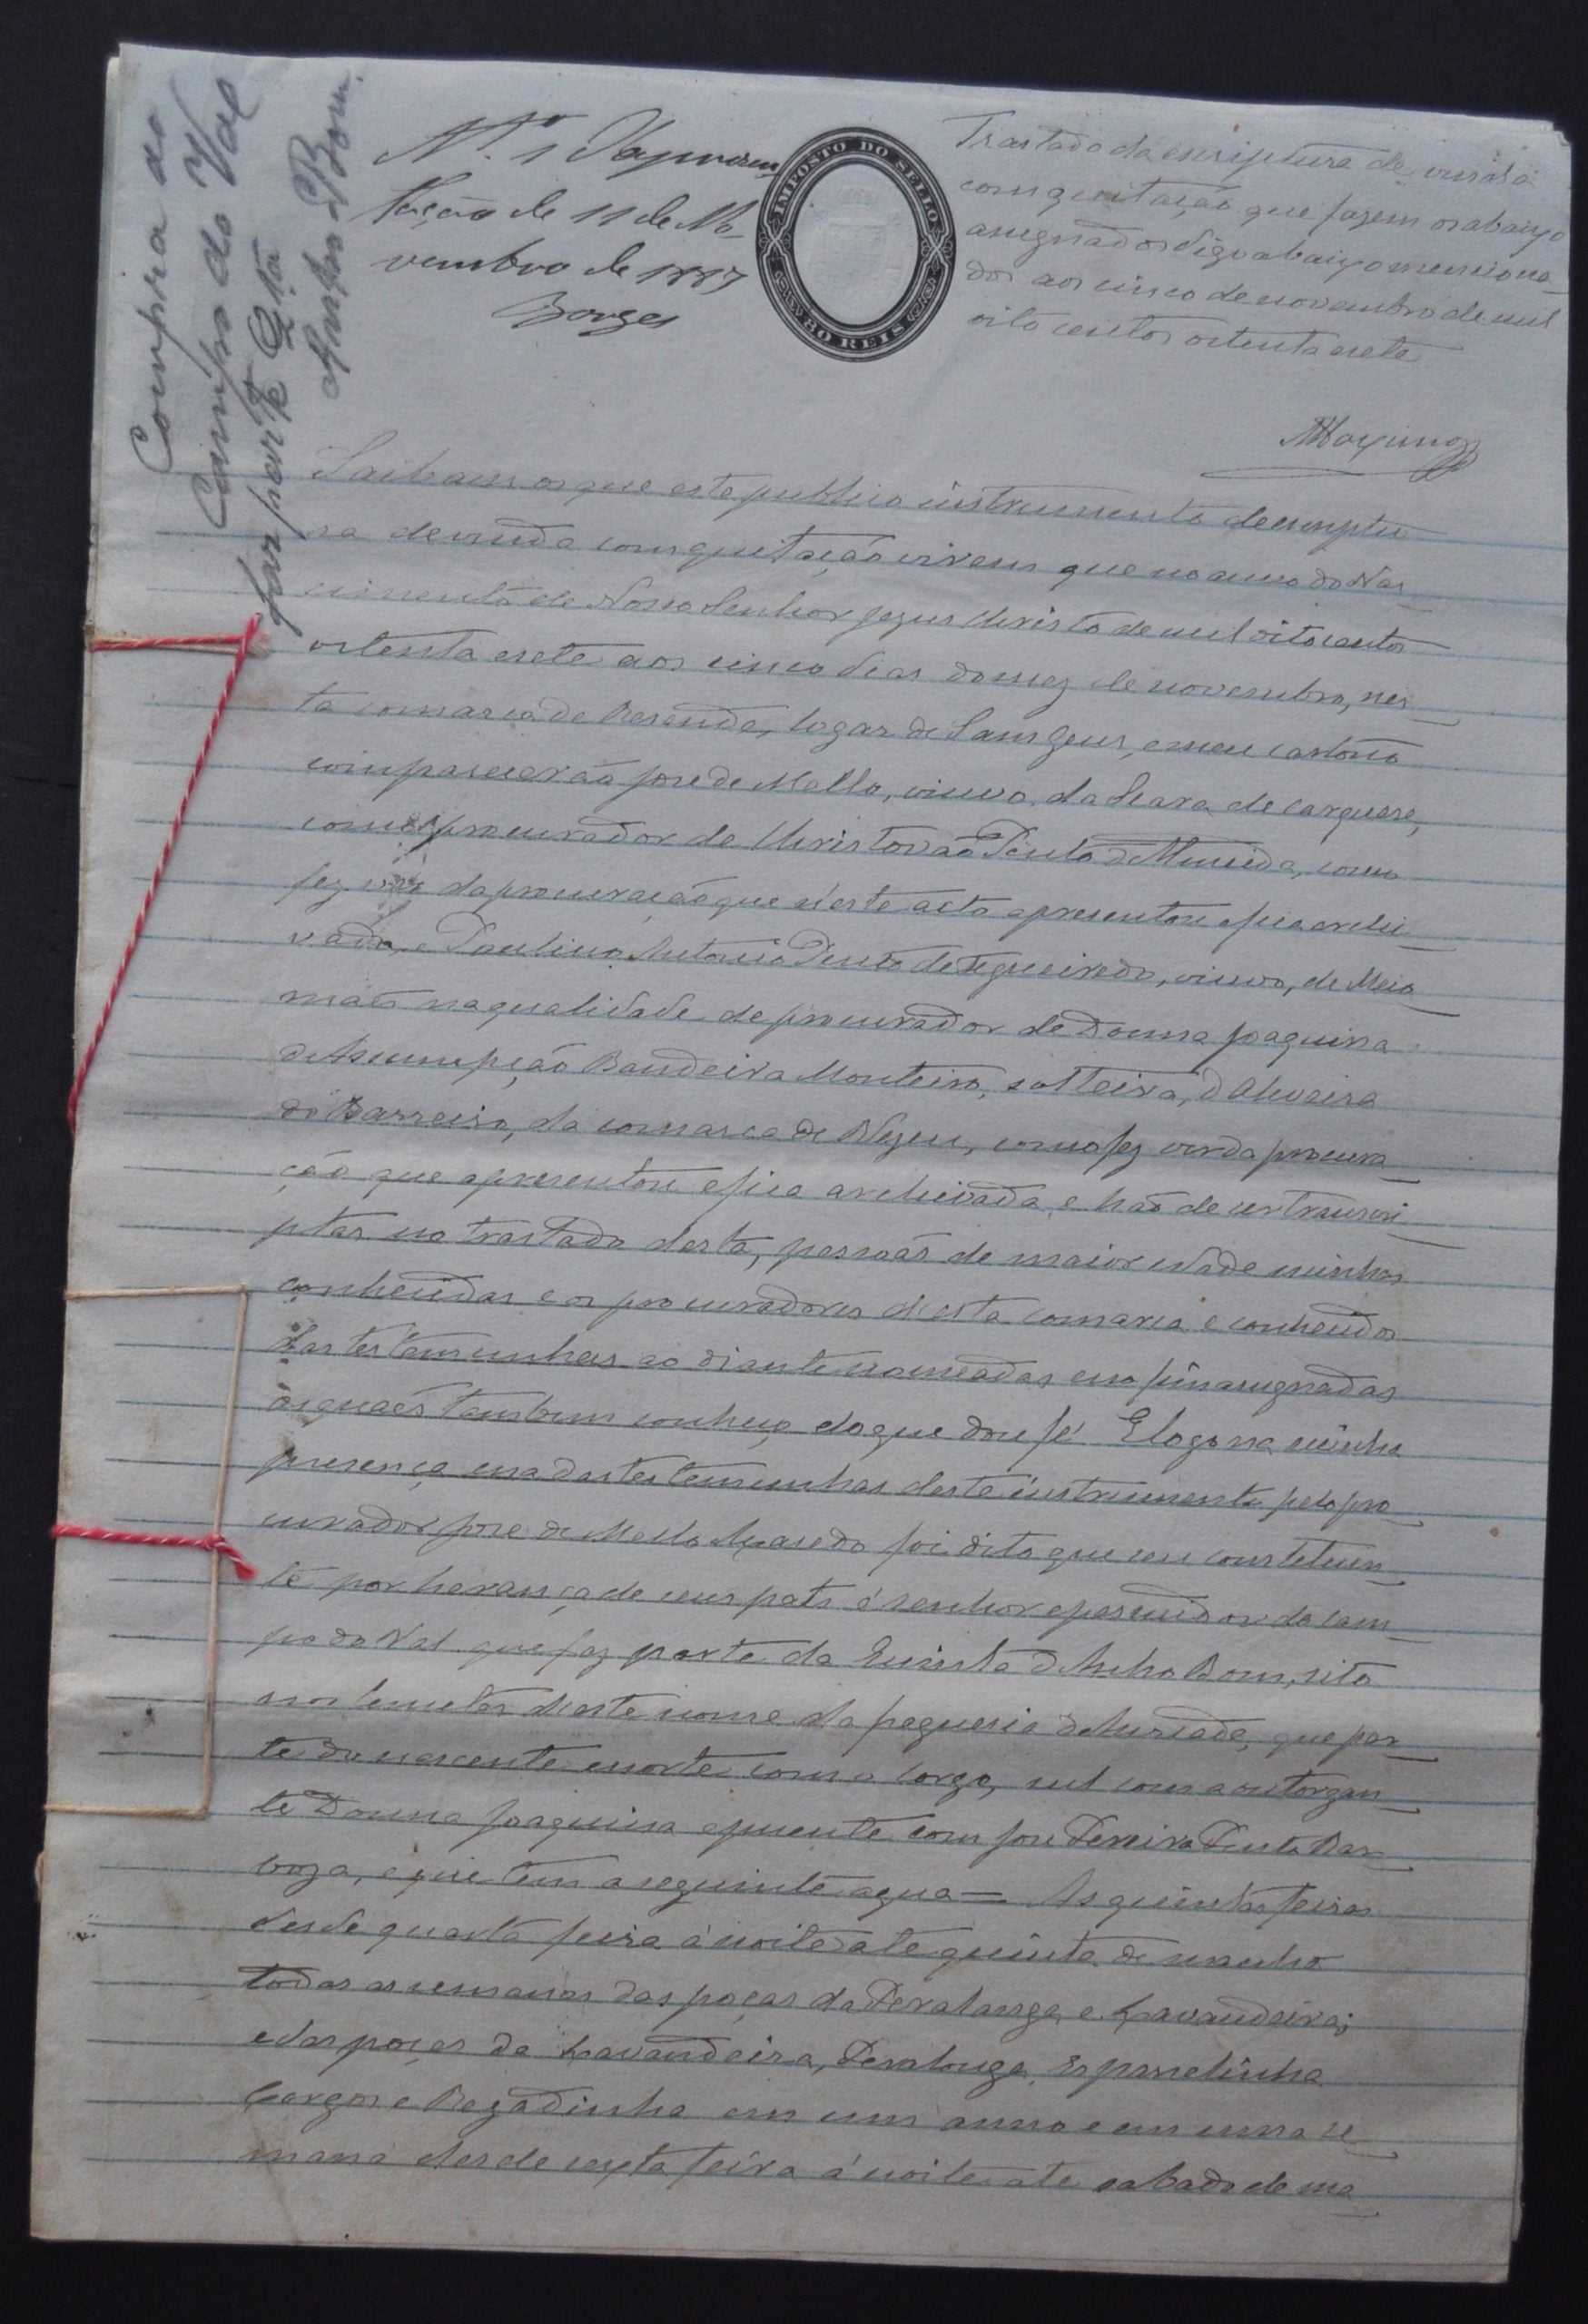 Compra do
Campo do Val
faz parte Qta
Ancho Bom.
Nº 1 Apresen
tação de 11 de No
vembro de 1887
Borges
IMPOSTO DO SELLO
80 REIS
Trastado da escriptura de venda
com quitação que fazem os abaixo
assignados digo abaixo menciona
dos aos cinco de novembro de mil
oito centos oitenta e sete
Saibam os que este publico instrumento de escriptu
ra de venda com quitação virem que no anno do Nas
cimento de Nosso Senhor Jezus Christo de mil oitocentos
oitenta e sete aos cinco dias do mez de novembro, nes
ta comarca de Resende, logar de e meu cartorio
comparecerão José de Mello, viuvo, da Seara de Carquere,
como procurador de Christovão Pinto d'Almeida, como
fez ver da procuração que n'este acto apresentou e fica archi
vada, e Paulino Antonio Pinto de Figueiredo, viuvo, de
na qualidade de procurador de Donna Joaquina
d'Assumpção Bandeira Monteiro, solteira, d'Oliveira
do Barreiro, da comarca de Vizeu, como fez ver da procura
ção que apresentou e fica archivada e hão de ser transcri
ptas no trastado desta, pessoas de maior idade minhas
conhecidas e os procuradores d'esta comarca e conhecidos
das testemunhas ao diante nomeadas e no fim assignadas
ás quaes tambem conheço do que dou fé E logo na minha
presença e na das testemunhas deste instrumento pelo pro
curador José de Mello Macedo foi dito que seu constetuin
te por herança de seus pais é senhor e possuidor do cam
po do Val que faz parte da Quinta d'Ancho Bom, sito
nos lemetes d'este nome da freguesia d'Anreade, que par
te do nascente e norte com o corgo, sul com a outorgan
te Donna Joaquina e poente com José Pereira Pinto Bar
boza, e que tem a seguinte agua — As quintas feiras
desde quarta feira á noite até quinta de manhã
todas as semanas das poças da Peralonga e Lavandeira;
e das poças da Lavandeira, Peralonga,
Corgos e Regadinha em um anno e em uma se
mana desde sexta feira á noite até sabado de ma